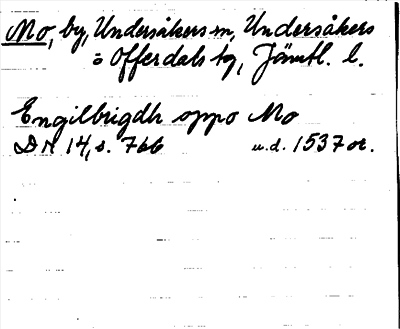 Mo, by, Undersåkers sn, Undersåkers
= Offerdals tg, Jämtl. l.
Engilbrigdh oppo Mo
DN 14, s. 766 u.d. 1537 or.